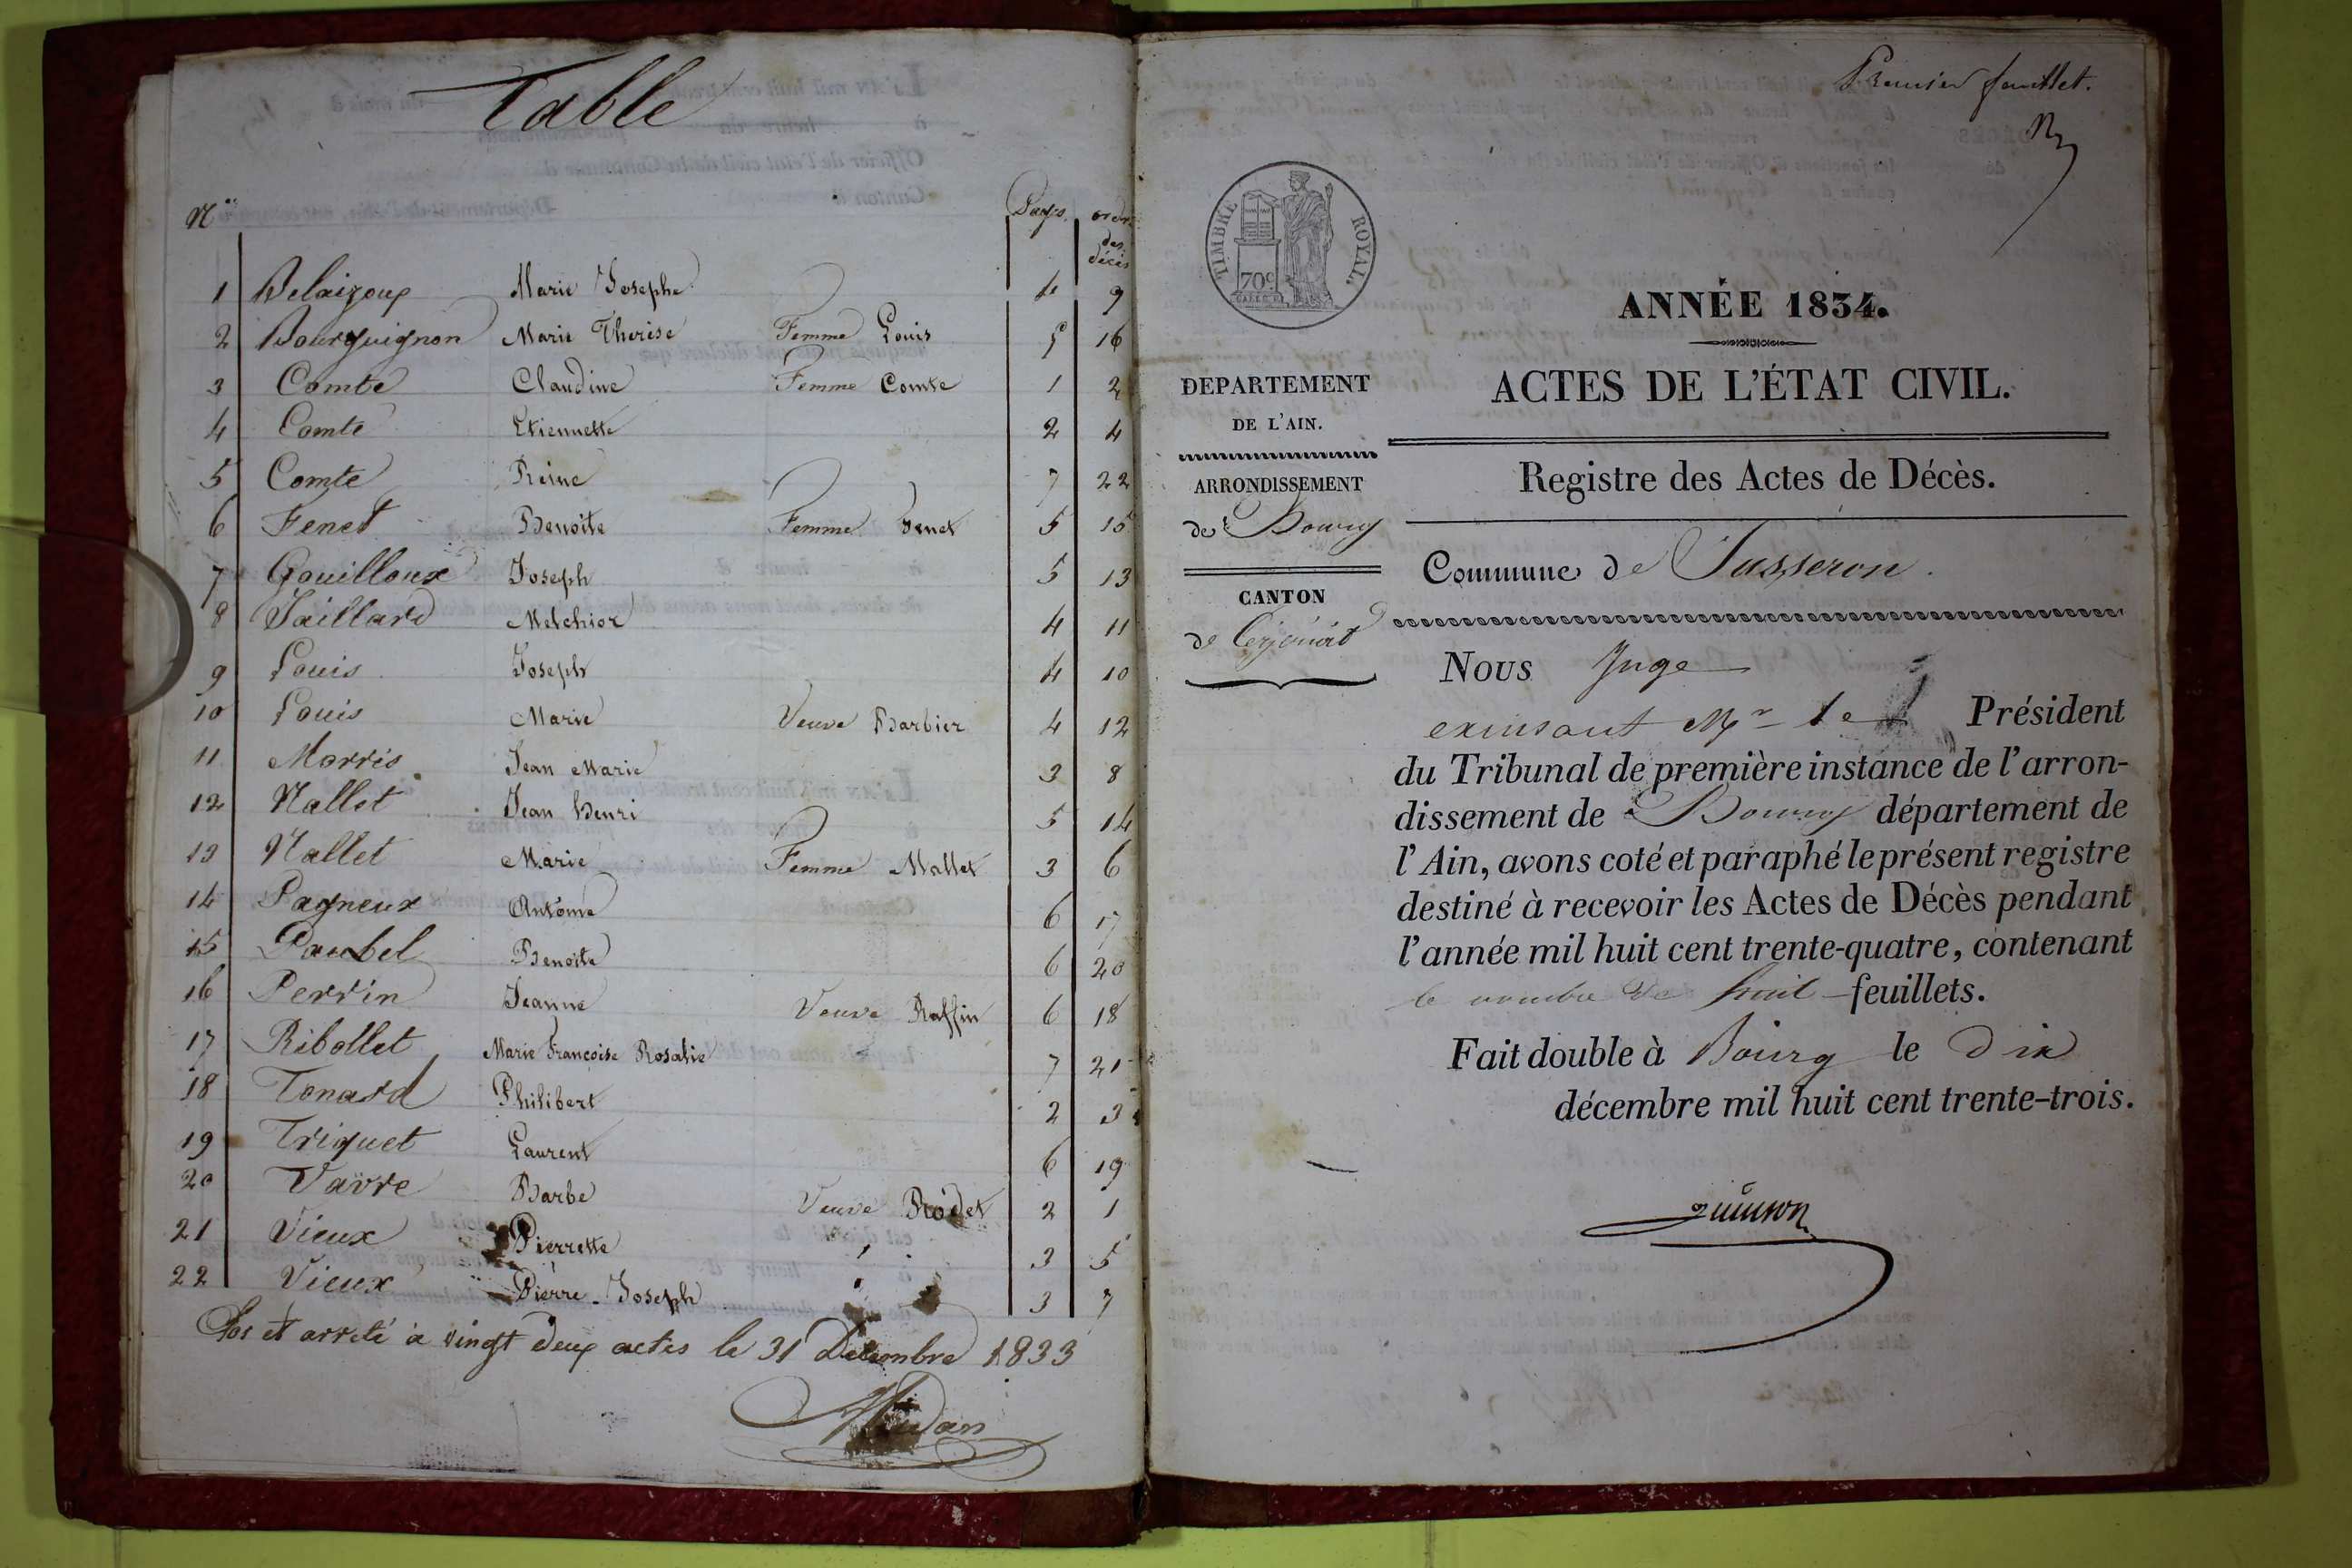 Table
Nos Pages ordre
des
décès
1 Belaizoux Marie Josephe 4 9
2 Bourguignon Marie Therèse Femme Louis 5 16
3 Comte Claudine Femme Comte 1 2
4 Comte Etiennette 2 4
5 Comte Reine 7 22
6 Fenet Benoite Femme Fenet 5 15
7 Gouilloux Joseph 5 13
8 Jaillard Melchior 4 11
9 Louis Joseph 4 10
10 Louis Marie Veuve Barbier 4 12
11 Morris Jean Marie 3 8
12 Nallet Jean Henri 5 14
13 Nallet Marie Femme Nallet 3 6
14 Pagneux Antoine 6 17
15 Paubel Benoite 6 20
16 Perrin Jeanne Veuve Raffin 6 18
17 Ribollet Marie Françoise Rosalie 7 21
18 Tonard Philibert 2 3
19 Triquet Laurent 6 19
20 Vavre Barbe Veuve Rodet 2 1
21 Vieux Pierrette 3 5
22 Vieux Pierre-Joseph 3 7
Clos et arreté à vingt deux actes le 31 Décembre 1833
Premier feuillet.
TIMBRE ROYAL
70c
ANNÉE 1834.
ACTES DE L'ÉTAT CIVIL.
DEPARTEMENT
DE L'AIN.
ARRONDISSEMENT
de Bourg
CANTON
de Ceyzériat
Registre des Actes de Décès.
Commune de Jasseron.
Nous Juge
exerçant Mr le Président
du Tribunal de première instance de l'arron-
dissement de Bourg département de
l'Ain, avons coté et paraphé le présent registre
destiné à recevoir les Actes de Décès pendant
l'année mil huit cent trente-quatre, contenant
le nombre de huit feuillets.
Fait double à Bourg le dix
décembre mil huit cent trente-trois.